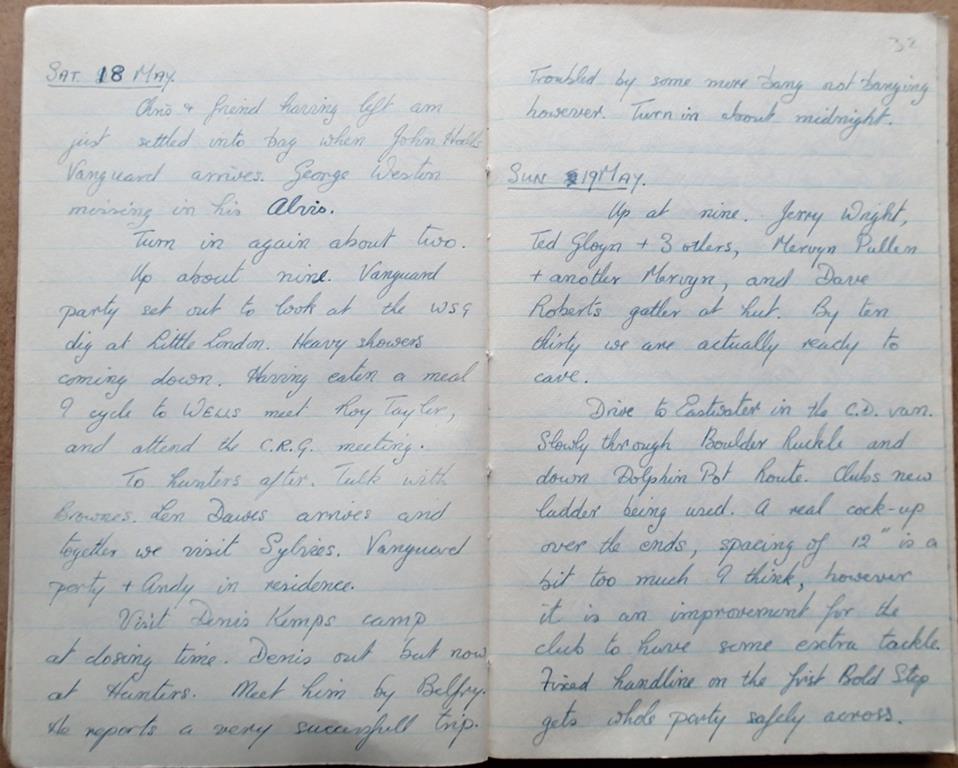 SAT. 18 MAY.
Chris + friend having left am
just settled into bag when John Halls
Vanguard arrives. George Weston
missing in his Alvis.
Turn in again about two.
Up about nine. Vanguard
party set out to look at the WSG
dig at Little London. Heavy showers
coming down. Having eaten a meal
I cycle to WELLS meet Roy Taylor,
and attend the C.R.G. meeting.
To Hunters after. Talk with
Brownes. Len Dawes arrives and
together we visit Sylvies. Vanguard
party + Andy in residence.
Visit Denis Kemps camp
at closing time. Denis out but now
at Hunters. Meet him by Belfry.
He reports a very succesfull trip.
32
Troubled by some more bang not banging
however. Turn in about midnight.
SUN 19 MAY.
Up at nine. Jerry Wright,
Ted Gloyn + 3 others, Mervyn Pullen
+ another Mervyn, and Dave
Roberts gather at hut. By ten
thirty we are actually ready to
cave.
Drive to Eastwater in the C.D. van.
Slowly through Boulder Ruckle and
down Dolphin Pot Route. Clubs new
ladder being used. A real cock-up
over the ends, spacing of 12" is a
bit too much I think, however
it is an improvement for the
club to have some extra tackle.
Fixed handline on the first Bold Step
gets whole party safely across.